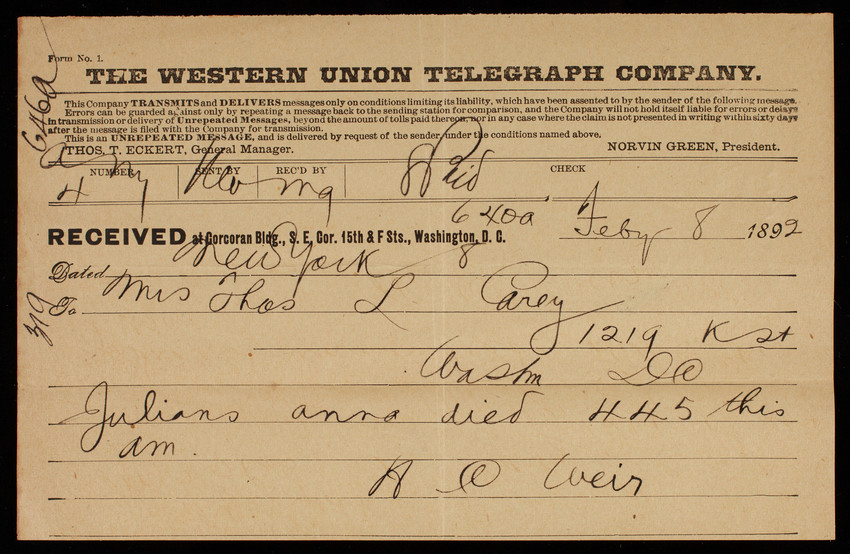 Form No. 1.
THE WESTERN UNION TELEGRAPH COMPANY.
This Company TRANSMITS and DELIVERS messages only on conditions limiting its liability, which have been assented to by the sender of the following message.
Errors can be guarded against only by repeating a message back to the sending station for comparison, and the Company will not hold itself liable for errors or delays
in transmission or delivery of Unrepeated Messages, beyond the amount of tolls paid thereon, nor in any case where the claim is not presented in writing within sixty days
after the message is filed with the Company for transmission.
This is an UNREPEATED MESSAGE, and is delivered by request of the sender, under the conditions named above.
THOS. T. ECKERT, General Manager. NORVIN GREEN, President.
NUMBER SENT BY REC'D BY CHECK
4 ny Paid
640a
RECEIVED at Corcoran Bldg., S. E. Cor. 15th & F Sts., Washington, D. C. Feby 8 1892
Dated New York 8
To Mrs Thos L Carey
1219 K st
Washn DC
Julians anna died 445 this
am.
Weir
646a
319